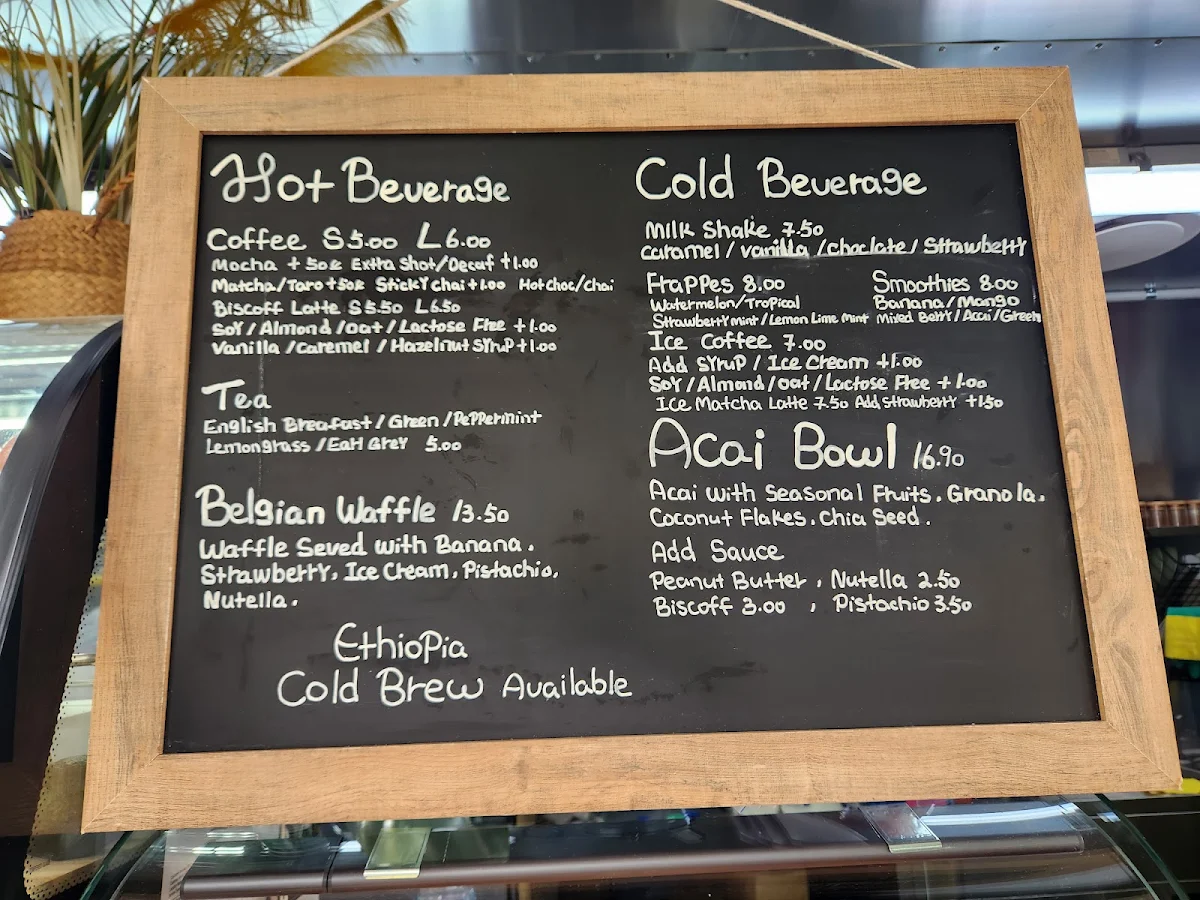 Hot Beverage
Coffee S 5.00 L 6.00
Mocha + 50c Extra Shot/Decaf +1.00
Matcha/Taro +50c Sticky chai +1.00 Hot choc/chai
Biscoff Latte S 5.50 L 6.50
Soy / Almond / Oat / Lactose Free +1.00
Vanilla / Caremel / Hazelnut Syrup +1.00
Tea
English Breafast / Green / Peppermint
Lemongrass / Earl Grey 5.00
Belgian Waffle 13.50
Waffle Seved with Banana.
Strawberry, Ice Cream, Pistachio,
Nutella.
Ethiopia
Cold Brew Available
Cold Beverage
Milk Shake 7.50
Caramel / Vanilla / Choclate / Strawberry
Frappes 8.00
Watermelon/Tropical
Strawberry mint / Lemon Lime Mint
Smoothies 8.00
Banana / Mango
Mixed Berry / Acai / Green
Ice Coffee 7.00
Add Syrup / Ice Cream +1.00
Soy / Almond / Oat / Lactose Free + 1.00
Ice Matcha Latte 7.50 Add Strawberry +1.50
Acai Bowl 16.90
Acai with Seasonal Fruits, Granola,
Coconut Flakes, Chia Seed.
Add Sauce
Peanut Butter, Nutella 2.50
Biscoff 3.00 , Pistachio 3.50